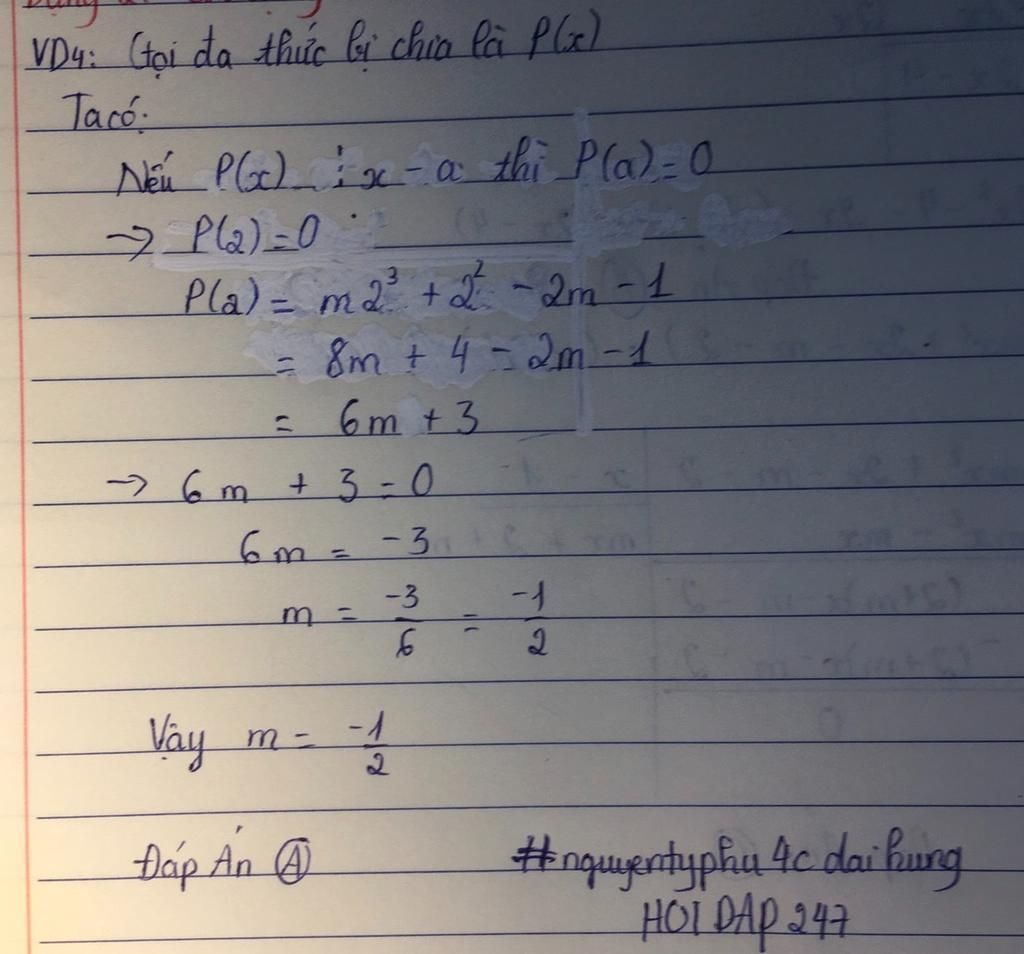 VD4: Gọi đa thức bị chia là P(x)
Ta có:
Nếu P(x) ⋮ x - a thì P(a) = 0
→ P(2) = 0
P(2) = m2³ + 2² - 2m - 1
= 8m + 4 - 2m - 1
= 6m + 3
→ 6m + 3 = 0
6m = -3
m = -3/6 = -1/2
Vậy m = -1/2
Đáp Án Ⓐ
#nguyentyphu4cdaihung
HOI DAP 247